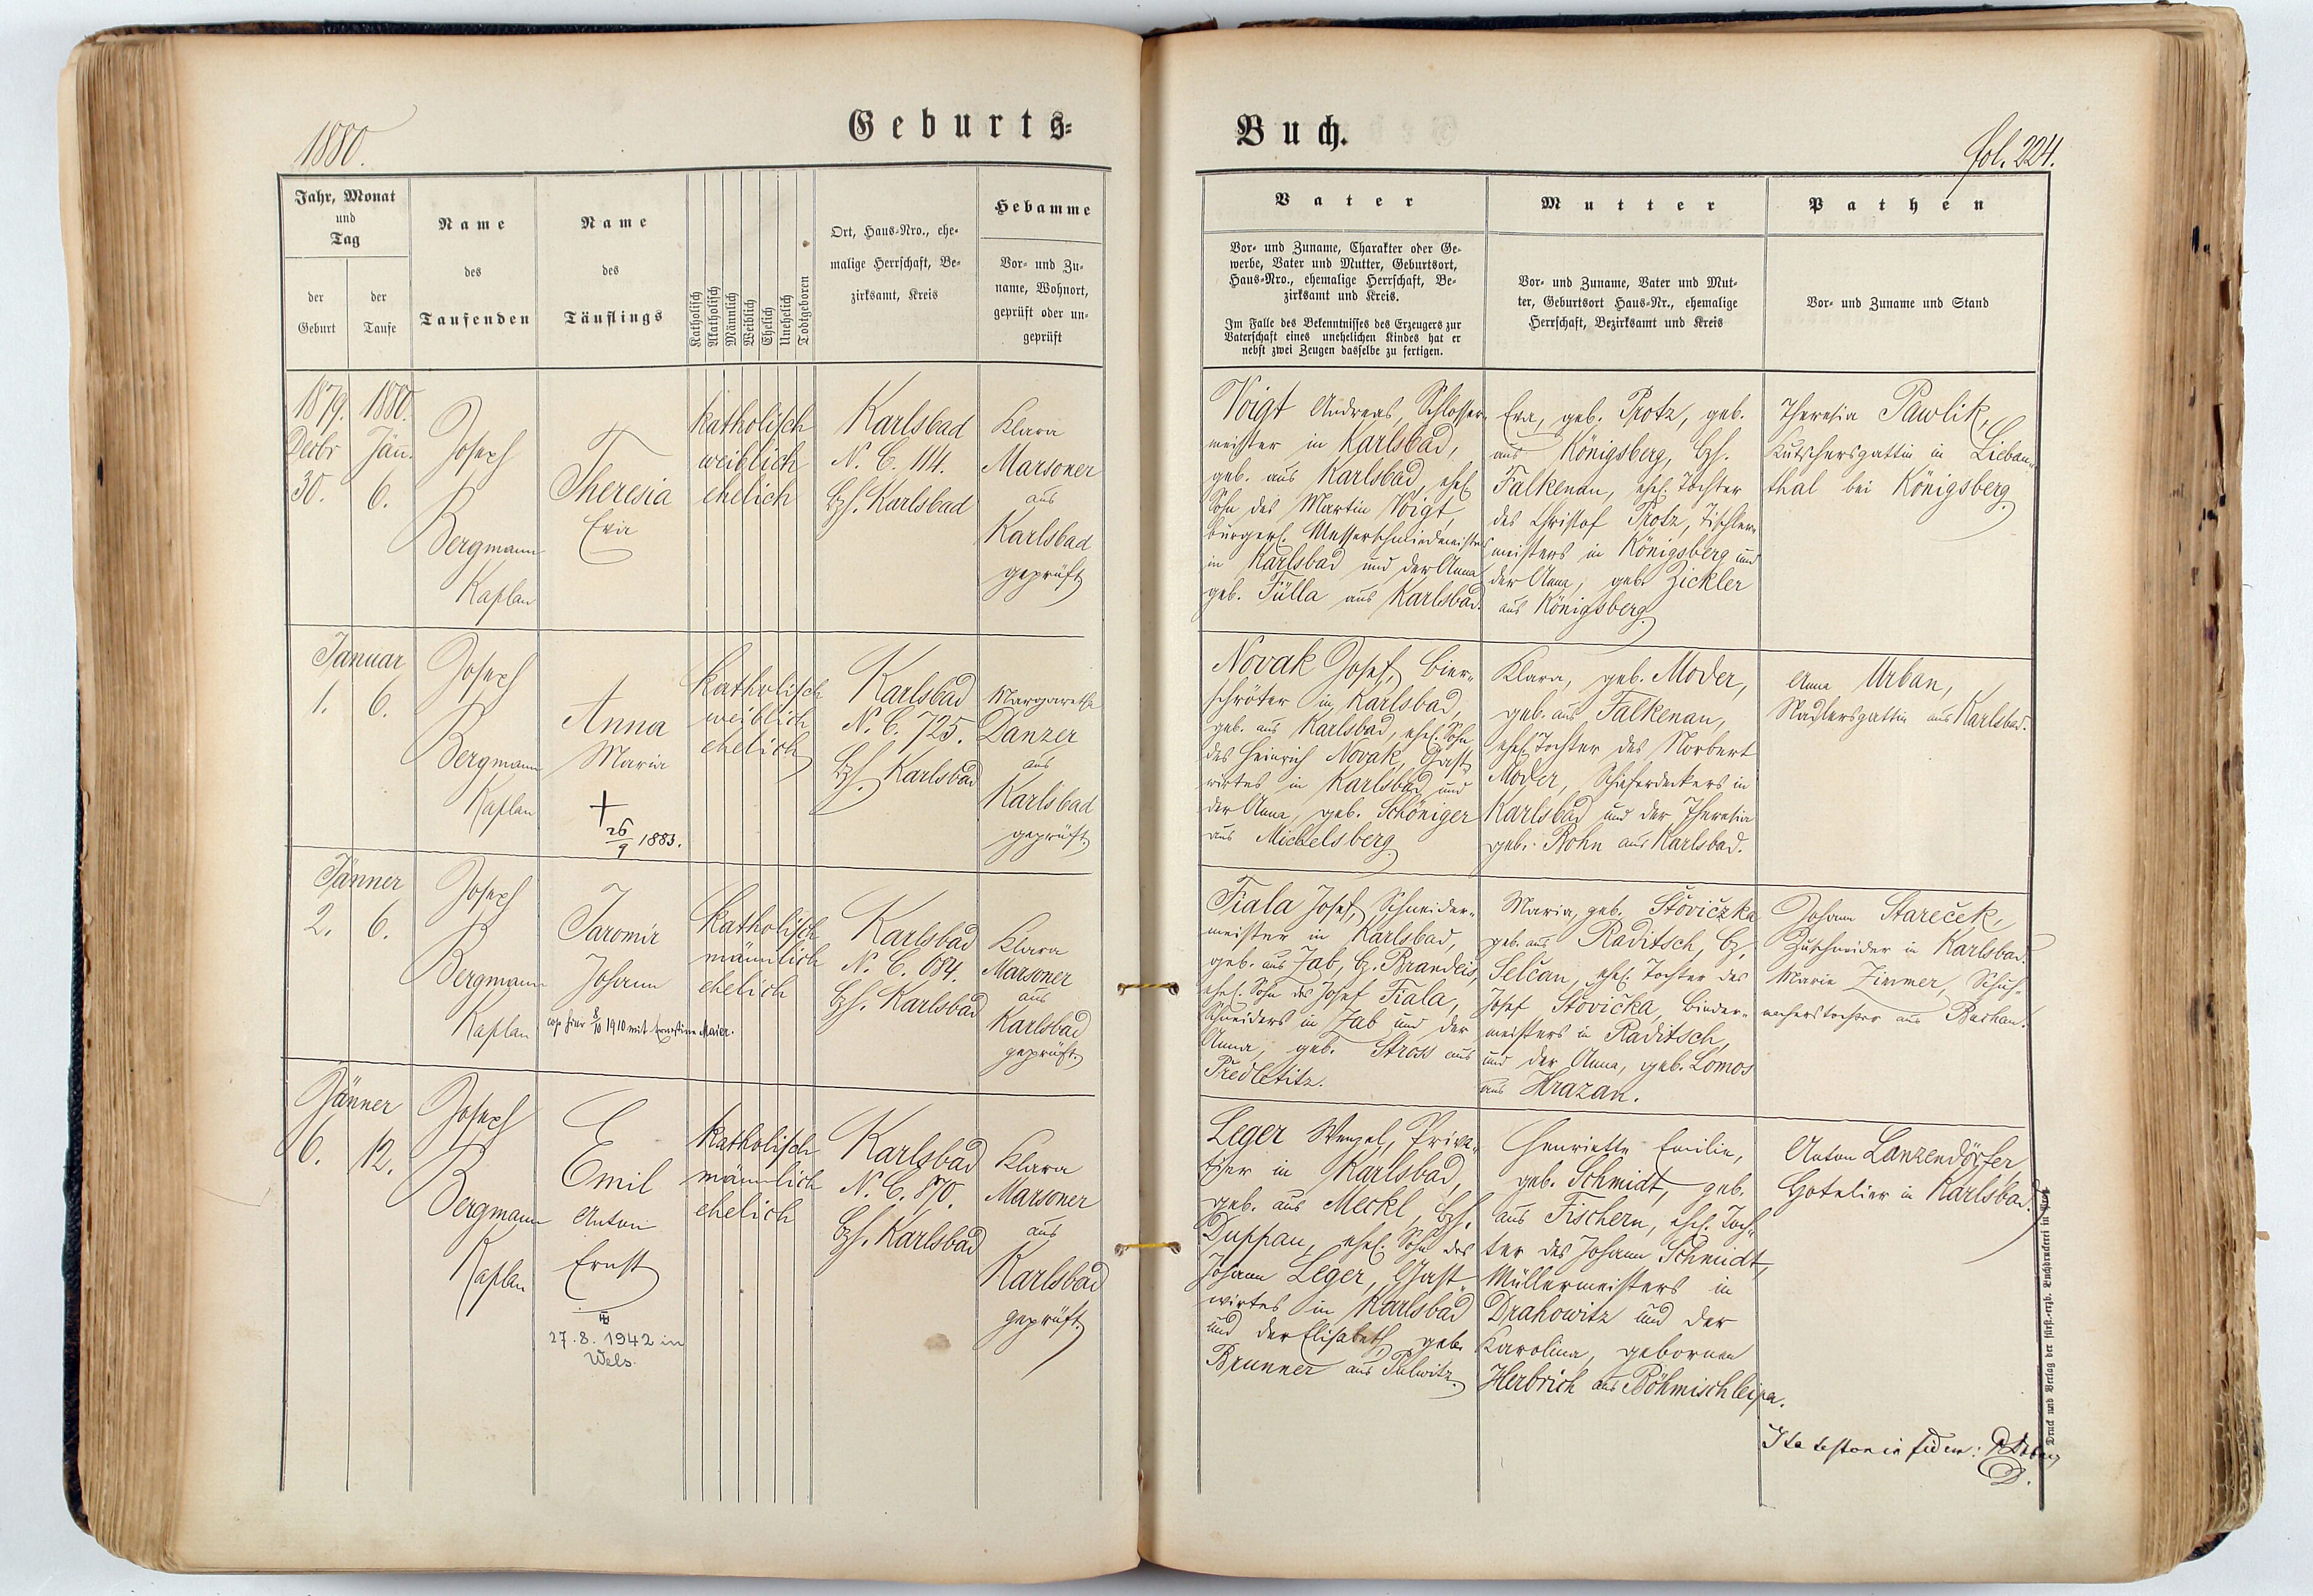 1880.
Geburts=
Jahr, Monat
und
Tag
der
Geburt
der
Taufe
Name
des
Taufenden
Name
des
Täuflings
Katholisch
Akatholisch
Männlich
Weiblich
Ehelich
Unehelich
Todtgeboren
Ort, Haus=Nro., ehe=
malige Herrschaft, Be=
zirksamt, Kreis
Hebamme
Vor= und Zu=
name, Wohnort,
geprüft oder un=
geprüft
1879. 1880.
Decbr Jän.
30. 6.
Joseph
Bergmann
Kaplan
Theresia
Eva
katholisch
weiblich
ehelich
Karlsbad
N. C. 114.
Bzh. Karlsbad
Klara
Marsoner
aus
Karlsbad
geprüft
Januar
1. 6.
Joseph
Bergmann
Kaplan
Anna
Maria
+
26/9 1883.
katholisch
weiblich
ehelich
Karlsbad
N. C. 725.
Bzh. Karlsbad
Margaretha
Danzer
aus
Karlsbad
geprüft
Jänner
2. 6.
Joseph
Bergmann
Kaplan
Jaromir
Johann
cop. hier 8/10 1910 mit Ernestine Maier.
katholisch
männlich
ehelich
Karlsbad
N. C. 684.
Bzh. Karlsbad
Klara
Marsoner
aus
Karlsbad
geprüft
Jänner
6. 12.
Joseph
Bergmann
Kaplan
Emil
Anton
Ernst
27.8.1942 in
Wels.
katholisch
männlich
ehelich
Karlsbad
N. C. 870.
Bzh. Karlsbad
Klara
Marsoner
aus
Karlsbad
geprüft
Buch.
fol. 224.
Vater
Vor= und Zuname, Charakter oder Ge=
werbe, Vater und Mutter, Geburtsort,
Haus=Nro., ehemalige Herrschaft, Be=
zirksamt und Kreis.
Im Falle des Bekenntnisses des Erzeugers zur
Vaterschaft eines unehelichen Kindes hat er
nebst zwei Zeugen dasselbe zu fertigen.
Mutter
Vor= und Zuname, Vater und Mut=
ter, Geburtsort Haus=Nr., ehemalige
Herrschaft, Bezirksamt und Kreis
Pathen
Vor= und Zuname und Stand
Voigt Andreas, Schlosser=
meister in Karlsbad,
geb. aus Karlsbad, ehel.
Sohn des Martin Voigt,
bürgerl. Messerschmiedmeisters
in Karlsbad und der Anna
geb. Fülla aus Karlsbad.
Eva, geb. Protz, geb.
aus Königsberg, Bzh.
Falkenau, ehel. Tochter
des Christof Protz, Tischler=
meisters in Königsberg und
der Anna, geb. Zickler
aus Königsberg.
Theresia Pawlik,
Kutschersgattin in Lieban=
thal bei Königsberg.
Novak Josef, Bier=
schröter in Karlsbad,
geb. aus Karlsbad, ehel. Sohn
des Heinrich Novak, Gast=
wirtes in Karlsbad und
der Anna, geb. Schöniger
aus Michelsberg.
Klara, geb. Moder,
geb. aus Falkenau,
ehel. Tochter des Norbert
Moder, Schieferdeckers in
Karlsbad und der Theresia
geb. Rohn aus Karlsbad.
Anna Urban,
Nadlersgattin aus Karlsbad.
Fiala Josef, Schneider=
meister in Karlsbad,
geb. aus Zab, Bz. Brandeis,
ehel. Sohn des Josef Fiala,
Schneiders in Zab und der
Anna, geb. Stross aus
Předletitz.
Maria, geb. Štovičzka
geb. aus Raditsch, Bz.
Selčan, ehel. Tochter des
Josef Štovička, Binder=
meisters in Raditsch,
und der Anna, geb. Lomos
aus Hrazan.
Johann Stareček,
Zuschneider in Karlsbad.
Marie Zimmer, Schuh=
macherstochter aus
Leger Wenzel, Priva=
tier in Karlsbad,
geb. aus Meckl, Bzh.
Duppau, ehel. Sohn des
Johann Leger, Gast=
wirtes in Karlsbad
und der Elisabeth, geb.
Brunner aus
Henriette Emilie,
geb. Schmidt, geb.
aus Fischern, ehel. Toch=
ter des Johann Schmidt,
Müllermeisters in
Drahowitz und der
Karolina, gebornen
Herbrich aus Böhmischleipa.
Anton Lanzendörfer,
Hotelier in Karlsbad.
Ita testor in fidem:
Druck und Verlag der fürst.=erzb. Buchdruckerei in Prag.